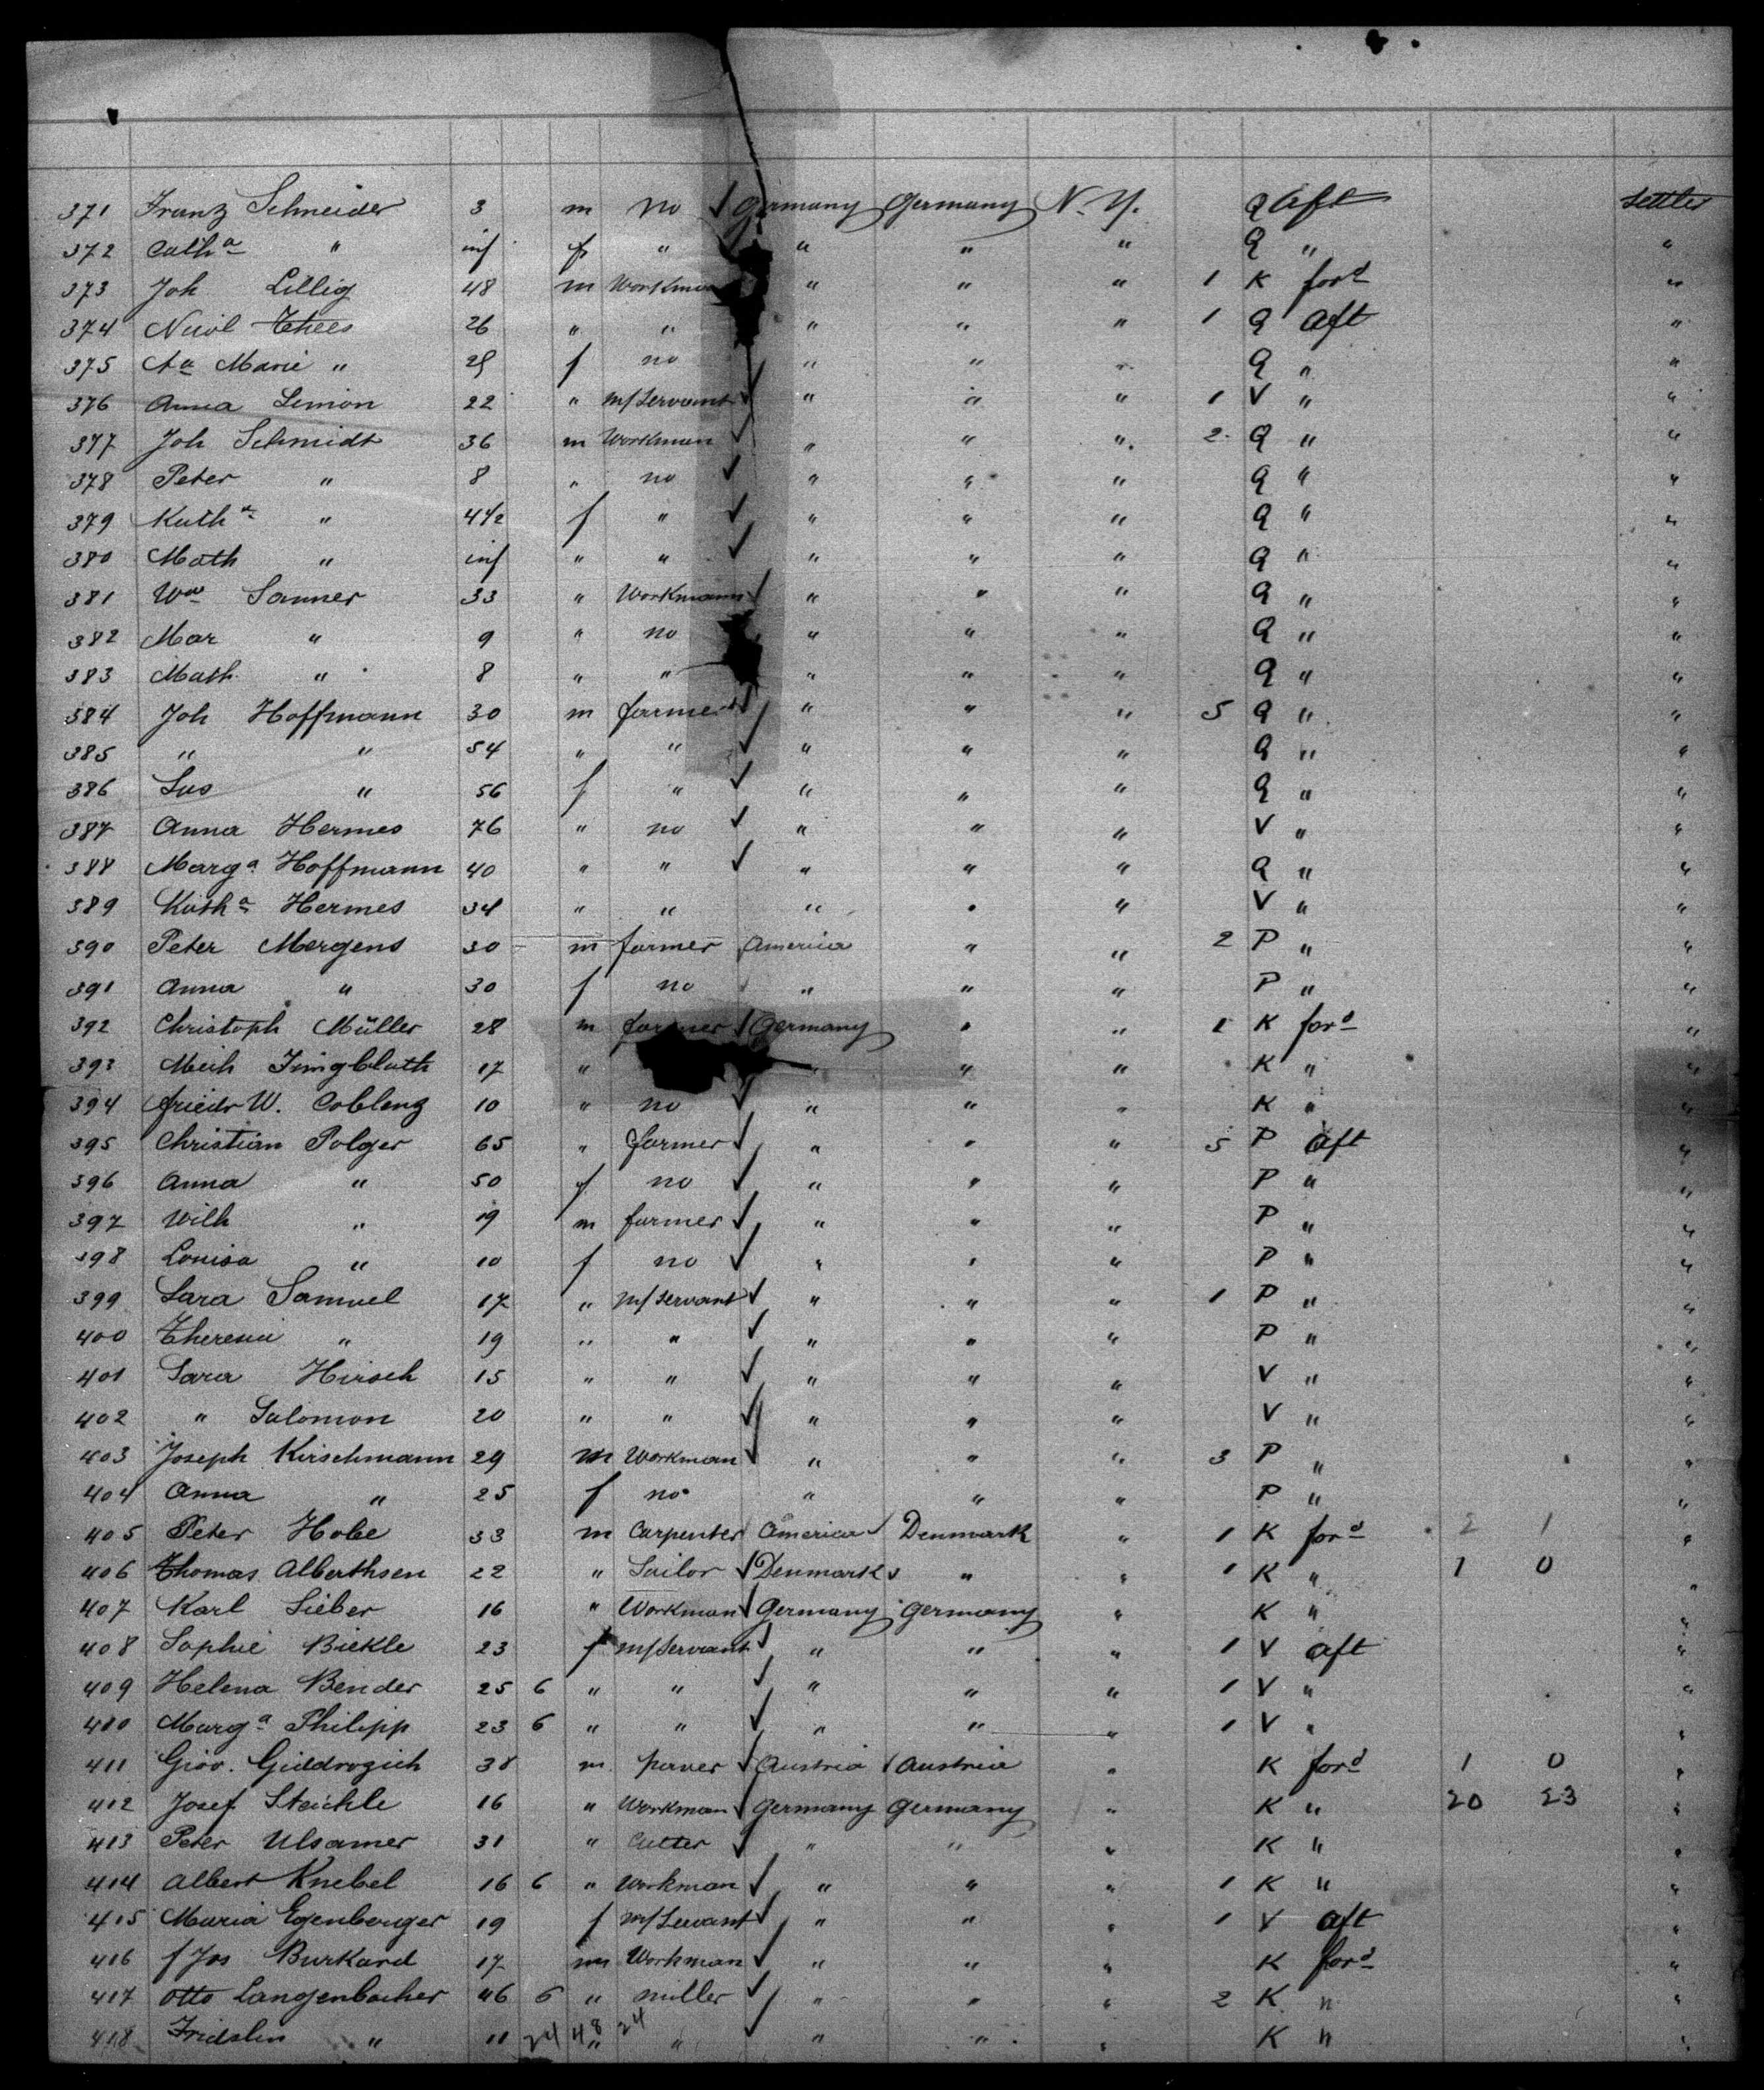 371 Franz Schneider 3 m no ✓ Germany Germany N. Y. Q aft Settler
372 Cath a " inf f " " " " Q " "
373 Joh Lillig 48 m Workman " " " 1 K ford "
374 Thees 26 " " " " " 1 Q aft "
375 Aa Marie " 25 f no " " " Q " "
376 Anna Simon 22 " m/Servant ✓ " " " 1 V " "
377 Joh Schmidt 36 m Workman ✓ " " " 2 Q " "
378 Peter " 8 " no ✓ " " " Q " "
379 Kath a " 4 1/2 f " ✓ " " " Q " "
380 Math " inf " " ✓ " " " Q " "
381 Sanner 33 " Workmann ✓ " " " Q " "
382 Mar " 9 " no " " " Q " "
383 Math " 8 " " " " " Q " "
384 Joh Hoffmann 30 m farmer ✓ " " " 5 Q " "
385 " " 54 " " ✓ " " " Q " "
386 Sus " 56 f " ✓ " " " Q " "
387 Anna Hermes 76 " no ✓ " " " V " "
388 Marg a Hoffmann 40 " " ✓ " " " Q " "
389 Kath a Hermes 34 " " " " " V " "
390 Peter Mergens 30 m farmer America " " 2 P " "
391 Anna " 30 f no " " " P " "
392 Christoph Müller 28 m farmer ✓ Germany " " 1 K ford "
393 17 " " " " K " "
394 Friedr W. Coblenz 10 " no ✓ " " " K " "
395 Christian Polger 65 " farmer ✓ " " " 5 P aft "
396 Anna " 50 f no ✓ " " " P " "
397 Wilh " 19 m farmer ✓ " " " P " "
398 Louisa " 10 f no ✓ " " " P " "
399 Sara Samuel 17 " m/Servant ✓ " " " 1 P " "
400 " 19 " " ✓ " " " P " "
401 Sara Hirsch 15 " " ✓ " " " V " "
402 " Salomon 20 " " ✓ " " " V " "
403 Joseph Kirschmann 29 m Workman ✓ " " " 3 P " "
404 Anna " 25 f no " " " P " "
405 Peter Hobe 33 m Carpenter America ✓ Denmark " 1 K ford 2 1 "
406 Thomas Alberthsen 22 " Sailor ✓ Denmark ✓ " " 1 K " 1 0 "
407 Karl Sieber 16 " Workman ✓ Germany Germany " K " "
408 Sophie Bickle 23 f m/Servant ✓ " " " 1 V aft "
409 Helena Bender 25 6 " " ✓ " " " 1 V " "
410 Marg a Philipp 23 6 " " ✓ " " " 1 V " "
411 Giov. 38 m paver ✓ Austria ✓ Austria " K ford 1 0 "
412 Josef Steichle 16 " Workman ✓ Germany Germany " K " 20 23 "
413 Peter Ulsamer 31 " Cutter ✓ " " " K " "
414 Albert Knebel 16 6 " Workman ✓ " " " 1 K " "
415 Maria Egenberger 19 f m/Servant ✓ " " " 1 V aft "
416 f Jos Burkard 17 m Workman ✓ " " " K ford "
417 Otto Langenbacher 46 6 " miller ✓ " " " 2 K " "
418 Fridolin " 11 24 48 24 " " ✓ " " " K " "